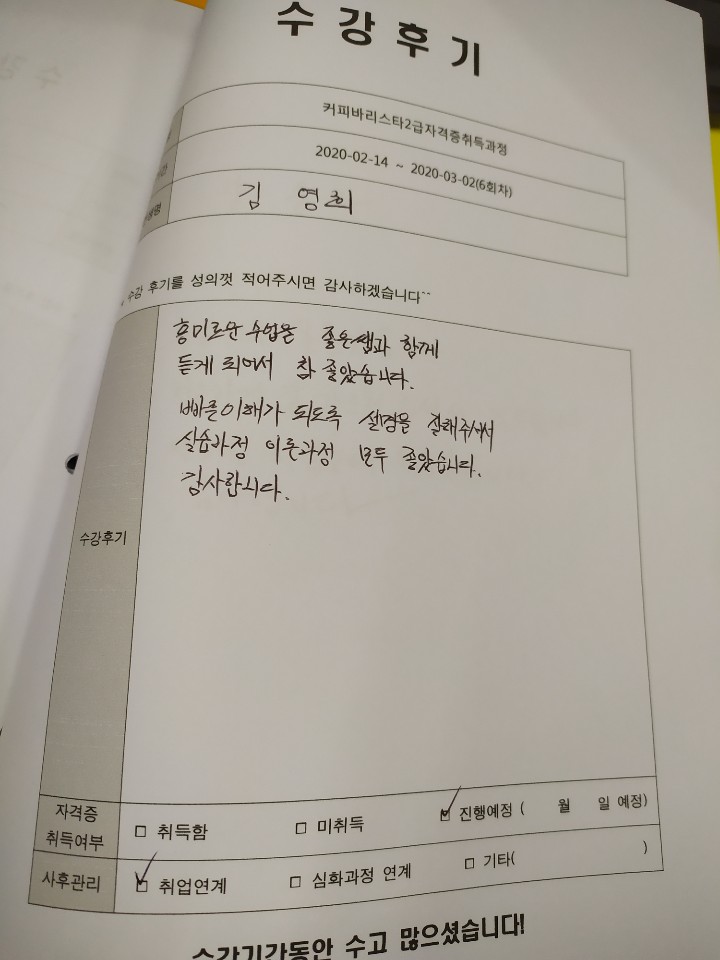 수강후기
커피바리스타2급자격증취득과정
2020-02-14 ~ 2020-03-02(6회차)
김 영희
수강 후기를 성의껏 적어주시면 감사하겠습니다~~
흥미로운 수업을 좋은쌤과 함께
듣게 되어서 참 좋았습니다.
빠른이해가 되도록 설명을 잘해주셔서
실습과정 이론과정 모두 좋았습니다.
감사합니다.
수강후기
자격증
취득여부
□ 취득함 □ 미취득 ☑ 진행예정 ( 월 일 예정)
사후관리 ☑ 취업연계 □ 심화과정 연계 □ 기타( )
수강기간동안 수고 많으셨습니다!